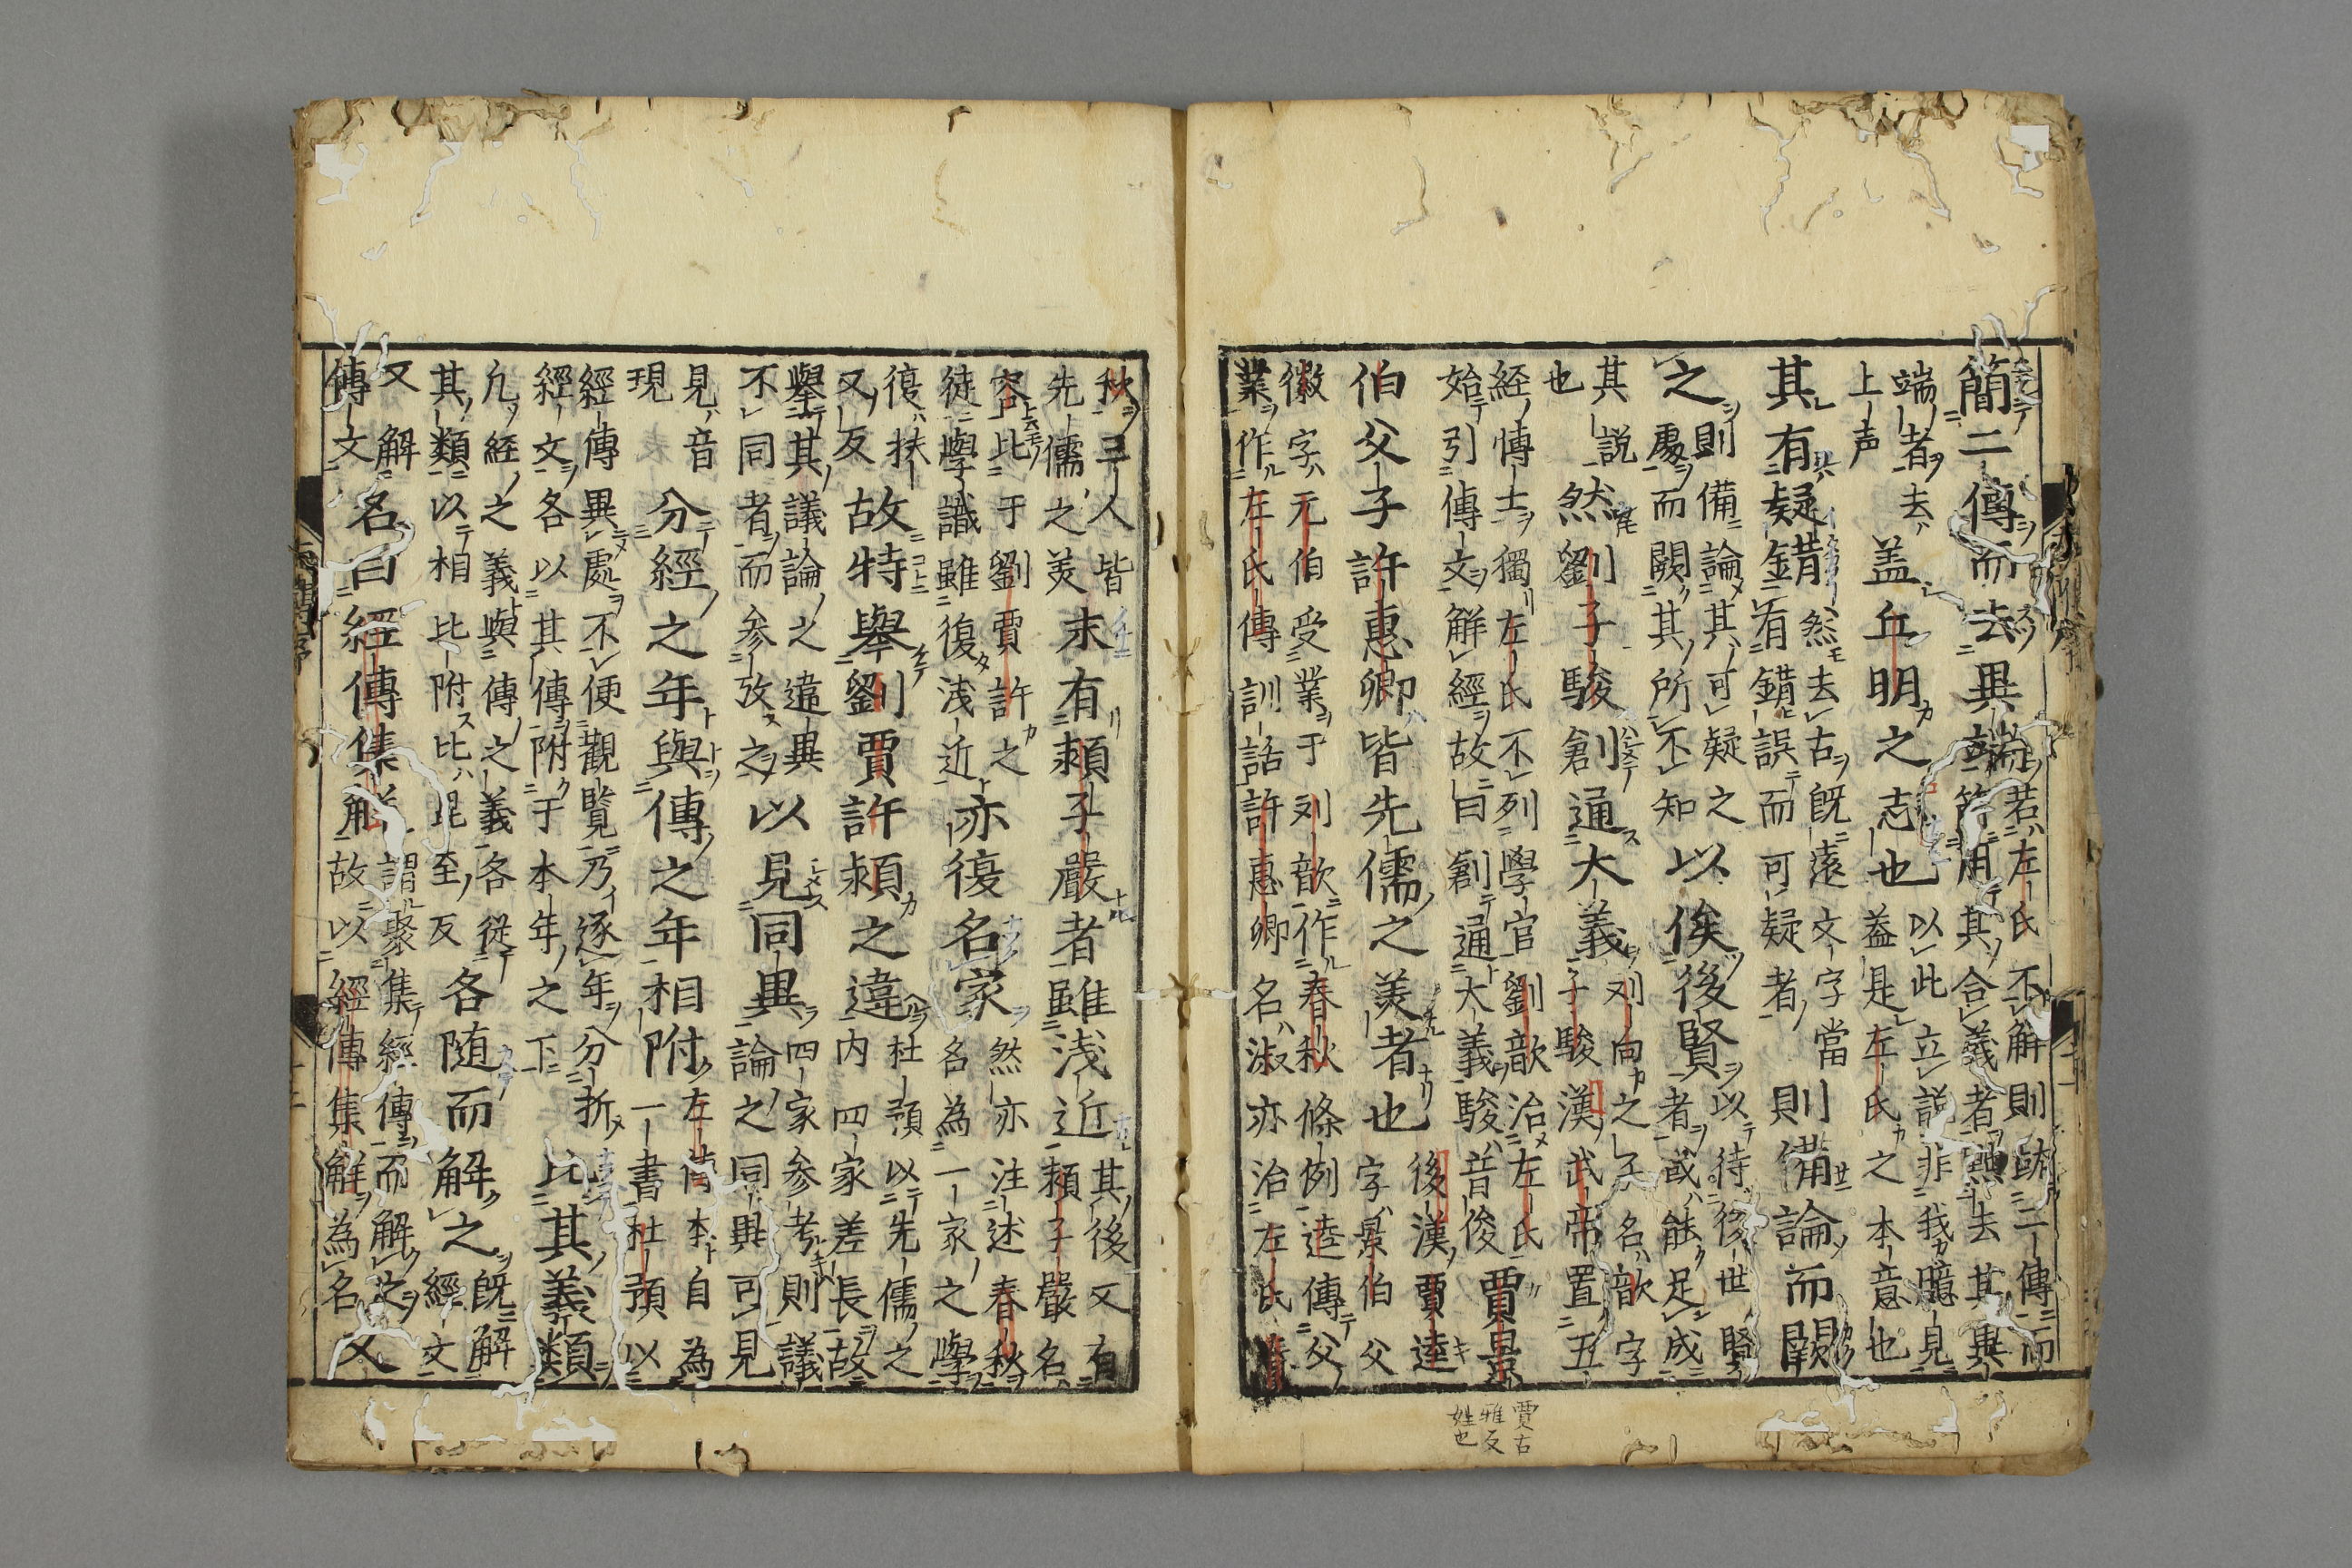 簡二傳而去異端若左氏不解則跡二傳而
簡用其合義者黜去其異
端者去盖丘明之志也以此立說非我臆見
上声益是左氏之本意也
其有疑錯然去古既遠文字當則備論而闕
有錯誤而可疑者
之則備論其可疑之以俟後賢以待後世賢
處而闕其所不知者或能足成
其説然劉子駿創通大義刘向之子名歆字
也子駿漢武帝置五
経博士獨左氏不列學官劉歆治左氏賈景
始引傳文解經故曰創通大義駿音俊
伯父子許惠卿皆先儒之美者也後漢賈逵
字景伯父
徽字元伯受業于刘歆作春秋條例逵傳父
業作左氏傳訓詁許惠卿名淑亦治左氏春
賈古
雅反
姓也
秋三人皆末有潁子嚴者雖浅近其後又有
先儒之美潁子嚴名
容比于劉賈許之亦復名家然亦注述春秋
徒學識雖復浅近名為一家之學
復扶故特舉劉賈許潁之違杜預以先儒之
又反内四家差長故
舉其議論之違異以見同異四家参考則議
不同者而参攷之論之同異可見
見音分經之年與傳之年相附左傳本自為
現一書杜預以
經傳異處不便觀覧乃逐年分折比其義類
經文各以其傳附于本年之下
凢経之義與傳之義各從各随而解之既解
其類以相比附比毘至反經文
又解名曰經傳集解謂聚集經傳而解之又
傳文故以經傳集解為名